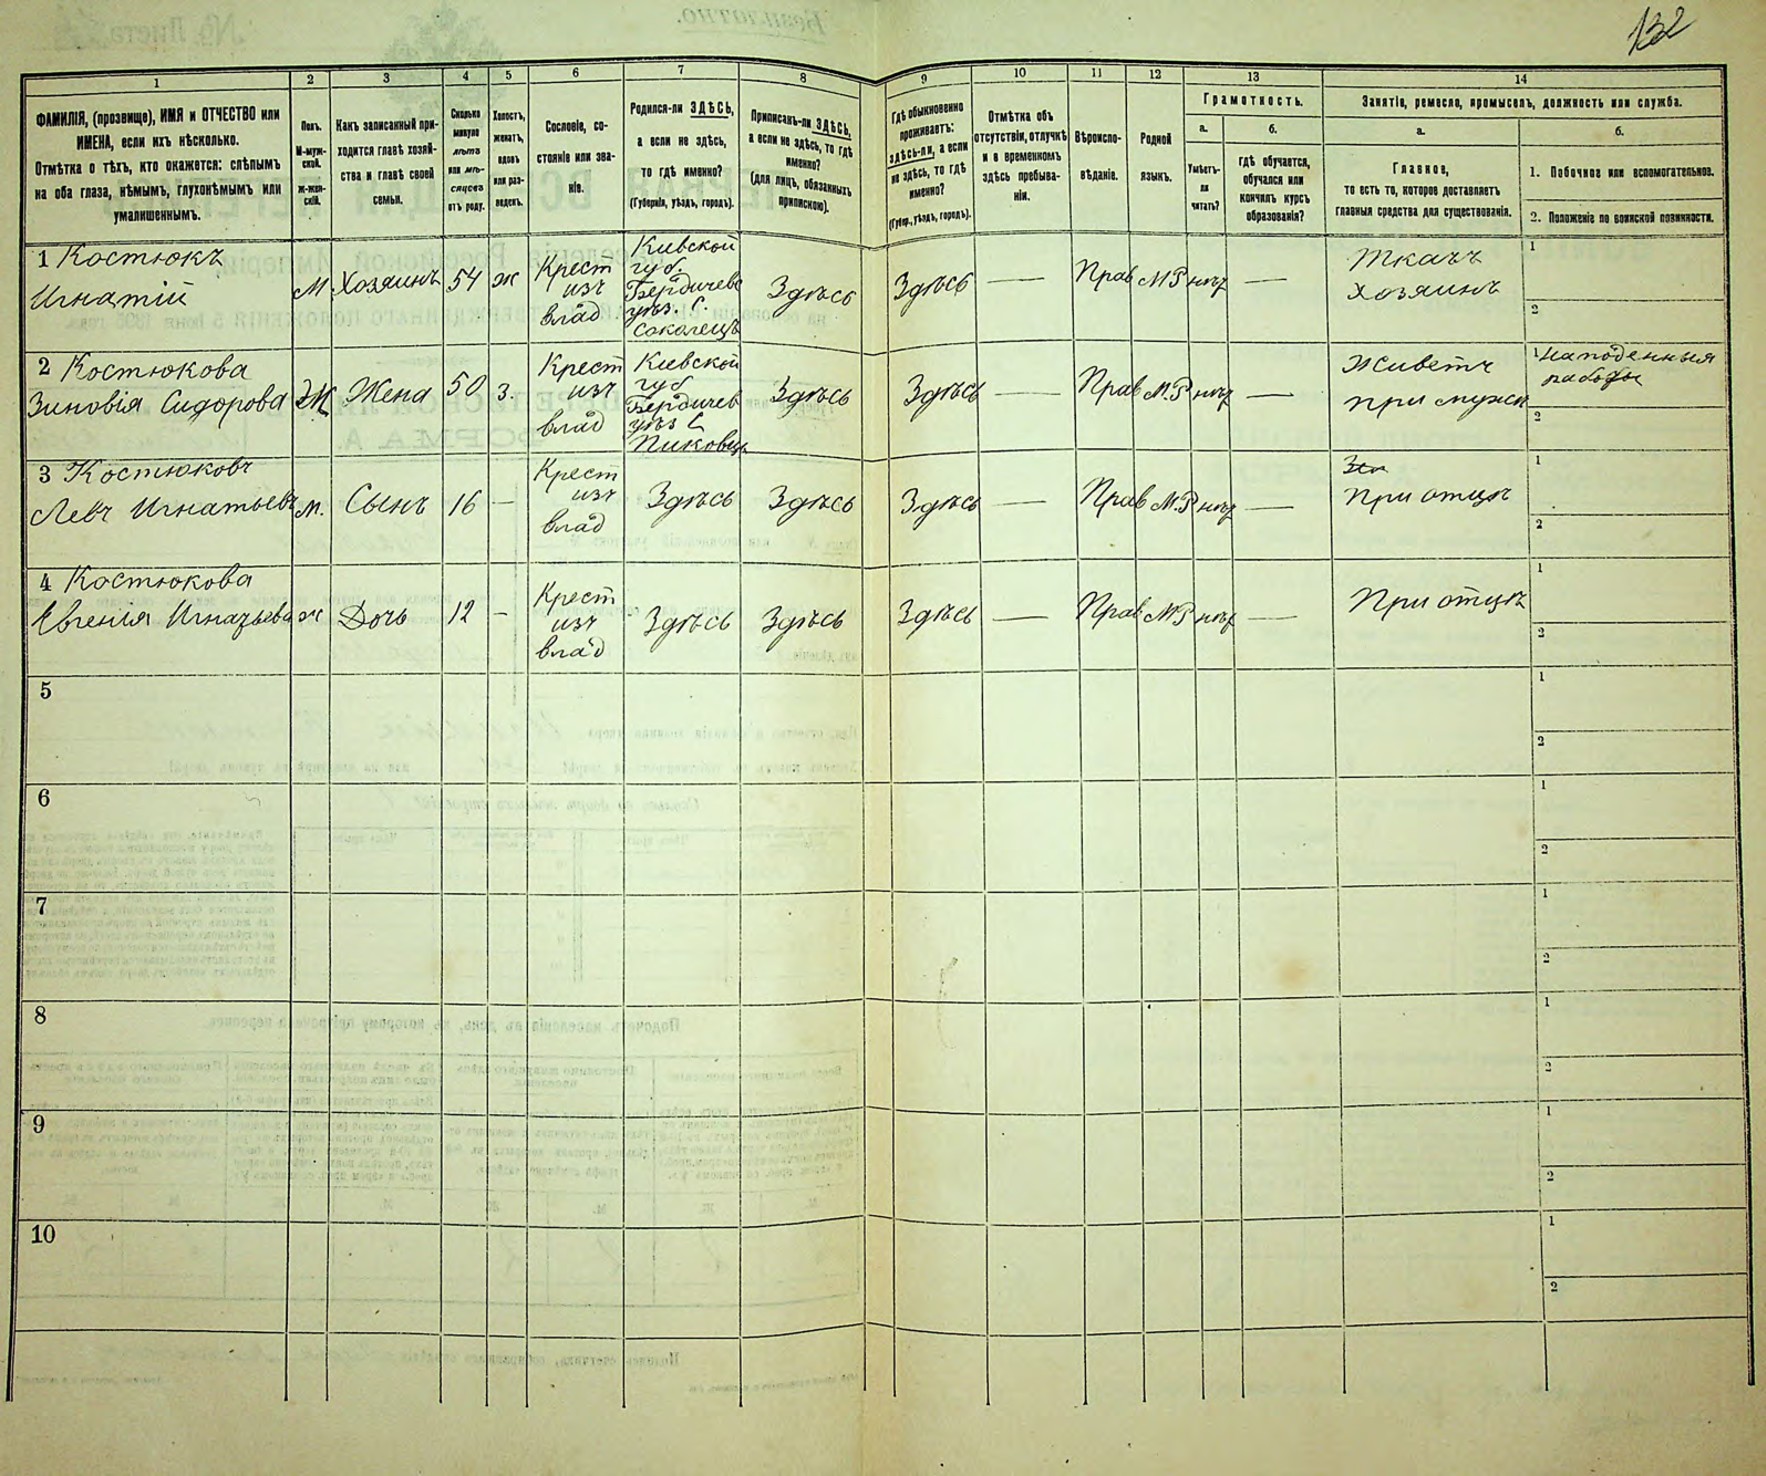 132
1
2
3
4
5
6
7
8
9
10
11
12
13
14
ФАМИЛІЯ, (прозвище), ИМЯ и ОТЧЕСТВО или
ИМЕНА, если ихъ нѣсколько.
Отмѣтка о тѣхъ, кто окажется: слѣпымъ
на оба глаза, нѣмымъ, глухонѣмымъ или
умалишеннымъ.
Полъ.
М-муж-
ской.
Ж-жен-
скій.
Какъ записанный при-
ходится главѣ хозяй-
ства и главѣ своей
семьи.
Сколько
минуло
лѣтъ
или мѣ-
сяцевъ
отъ роду.
Холостъ,
женатъ,
вдовъ
или раз-
веденъ.
Сословіе, со-
стояніе или зва-
ніе.
Родился-ли ЗДѢСЬ,
а если не здѣсь,
то гдѣ именно?
(Губернія, уѣздъ, городъ).
Приписанъ-ли ЗДѢСЬ,
а если не здѣсь, то гдѣ
именно?
(для лицъ, обязанныхъ
припискою).
Гдѣ обыкновенно
проживаетъ:
здѣсь-ли, а если
не здѣсь, то гдѣ
именно?
(Губер., уѣздъ, городъ).
Отмѣтка объ
отсутствіи, отлучкѣ
и о временномъ
здѣсь пребыва-
ніи.
Вѣроиспо-
вѣданіе.
Родной
языкъ.
Грамотность.
а.
Умѣетъ-
ли
читать?
б.
гдѣ обучается,
обучался или
кончилъ курсъ
образованія?
Занятіе, ремесло, промыселъ, должность или служба.
а.
Главное,
то есть то, которое доставляетъ
главныя средства для существованія.
б.
1. Побочное или вспомогательное.
2. Положеніе по воинской повинности.
1 Костюкъ
Игнатій
М
Хозяинъ
54
ж
Крест
изъ
влад
Кіевской
губ.
Бердичевс
уѣз. С.
Соколецъ
Здѣсь
Здѣсь
—
Прав
МР
нѣт
—
Ткачъ
Хозяинъ
1
2
2 Костюкова
Зиновія Сидорова
Ж
Жена
50
З.
Крест
изъ
влад
Кіевской
губ
Бердичев
уѣз С
Пиковецъ
Здѣсь
Здѣсь
—
Прав
М.Р
нѣт
—
Живетъ
при мужѣ
1 На поденныя
работы
2
3 Костюковъ
Левъ Игнатьевъ
М.
Сынъ
16
—
Крест
изъ
влад
Здѣсь
Здѣсь
Здѣсь
—
Прав
М.Р
нѣт
—
При отцѣ
1
2
4 Костюкова
Евгенія Игнатьева
ж
Дочь
12
-
Крест
изъ
влад
Здѣсь
Здѣсь
Здѣсь
—
Прав
МР
нѣт
—
При отцѣ
1
2
5
1
2
6
1
2
7
1
2
8
1
2
9
1
2
10
1
2